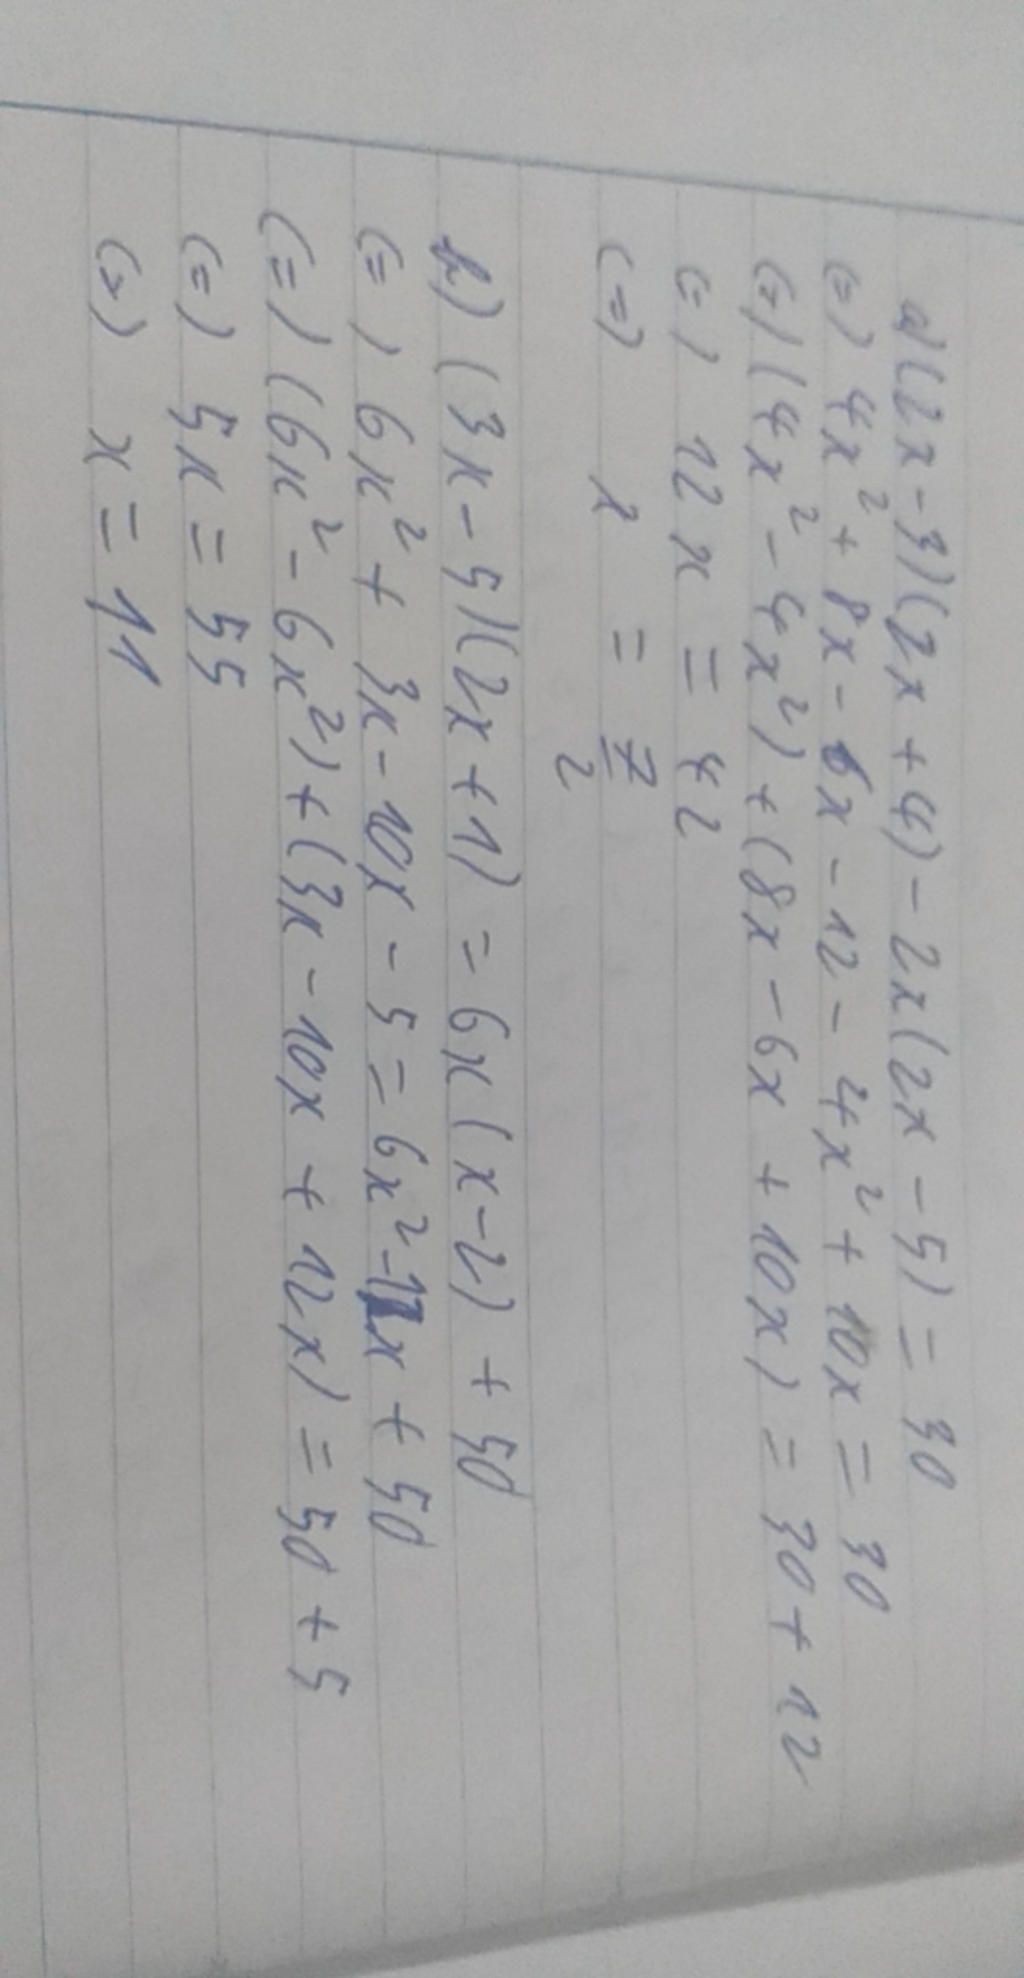 a) (2x - 3)(2x + 4) - 2x(2x - 5) = 30
(=) 4x² + 8x - 6x - 12 - 4x² + 10x = 30
(=) (4x² - 4x²) + (8x - 6x + 10x) = 30 + 12
(=) 12x = 42
(=) x = 7/2
b) (3x - 5)(2x + 1) = 6x(x - 2) + 50
(=) 6x² + 3x - 10x - 5 = 6x² - 12x + 50
(=) (6x² - 6x²) + (3x - 10x + 12x) = 50 + 5
(=) 5x = 55
(=) x = 11